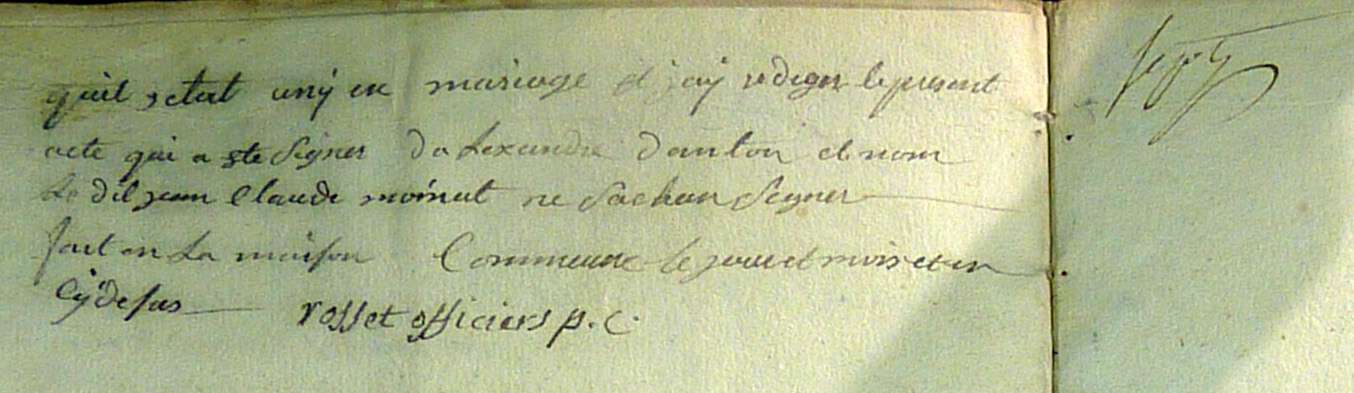 quil setat uny en mariage et jay rediger le present
acte qui a ste Signer dalexandre danton et nom
Le dit jean Claude moinat ne Sachan Signer
fait en La maison Commune le jour et mois et an
Cy desus rosset officiers p. c.